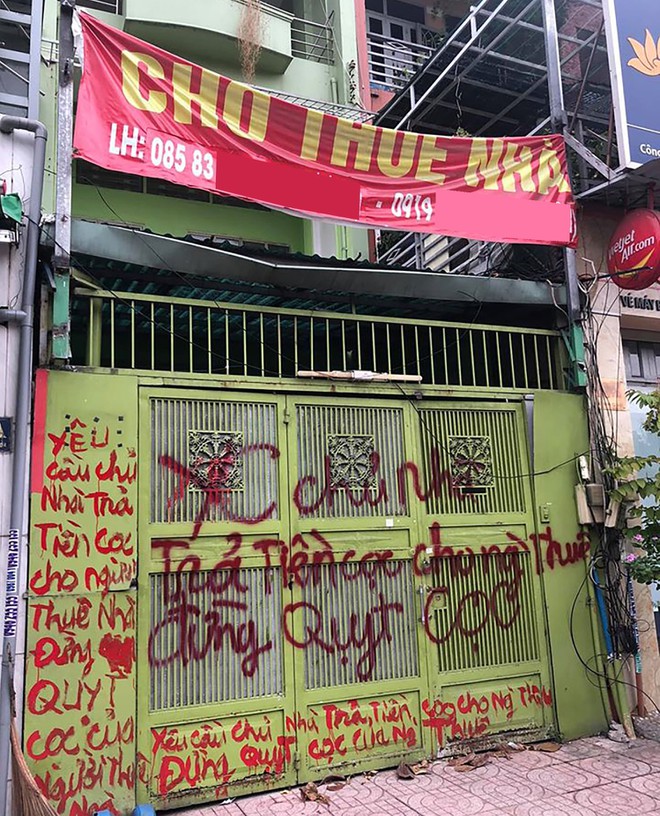 CHO THUÊ NHÀ
LH: 085 83
- 0919
Công
vietjet
Air.com
VÉ MÁY
YÊU
cầu chủ
Nhà Trả
Tiền cọc
cho người
Thuê Nhà
Đừng
QUỴT
cọc của
Người Thuê
Nhà
YC chủ nhà
Trả Tiền cọc cho ng Thuê
đừng Quỵt CỌC
Yêu cầu chủ Nhà Trả Tiền cọc cho Ng Thuê
Đừng QUỴT cọc của Ng Thuê